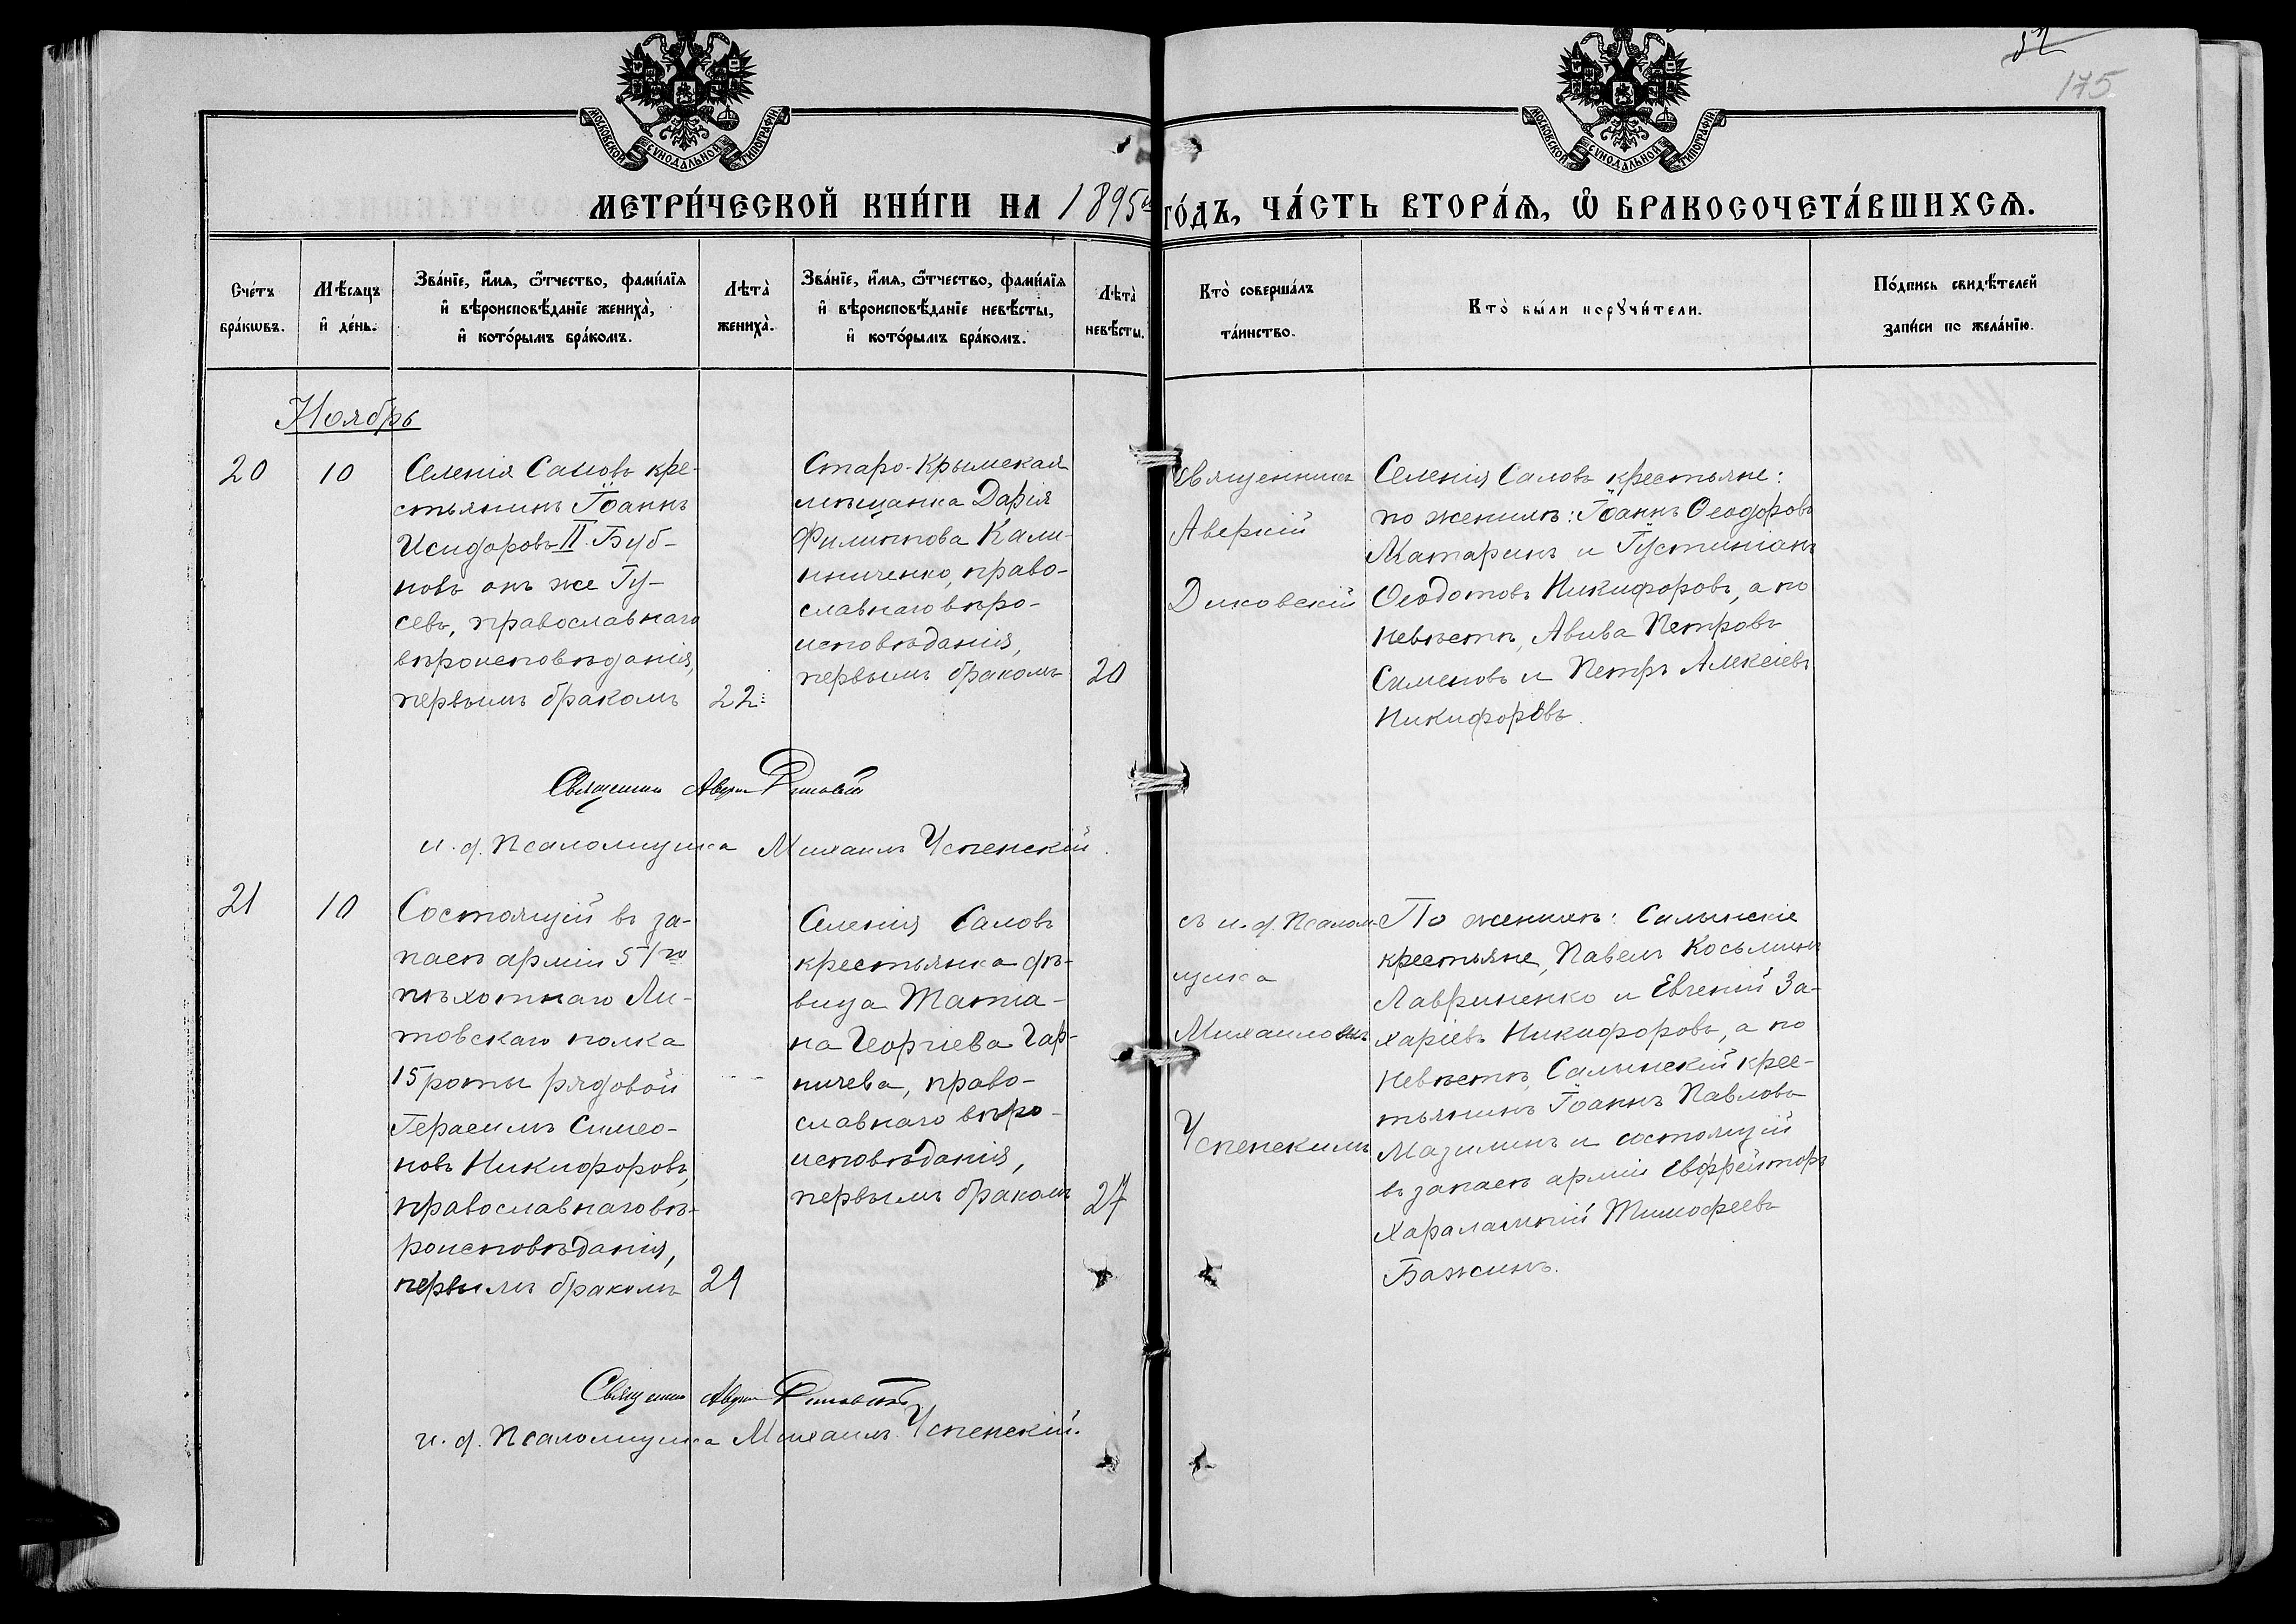 52
175
МОСКОВСКОЙ СѴНОДАЛЬНОЙ ТИПОГРАФІИ
МОСКОВСКОЙ СѴНОДАЛЬНОЙ ТИПОГРАФІИ
МЕТРИ́ЧЕСКОЙ КНИ́ГИ НА 1895й ГО́ДЪ, ЧА́СТЬ ВТОРА́Ѧ, Ѽ БРАКОСОЧЕТА́ВШИХСѦ.
Сче́тъ
бра́кѡвъ.
Мѣ́сѧцъ
и҆ де́нь.
Зва́нїе, и҆́мѧ, ѻ҆́тчество, фами́лїѧ
и҆ вѣроисповѣ́данїе жениха̀,
и҆ кото́рымъ бра́комъ.
Лѣта̀
жениха̀.
Зва́нїе, и҆́мѧ, ѻ҆́тчество, фами́лїѧ
и҆ вѣроисповѣ́данїе невѣ́сты,
и҆ кото́рымъ бра́комъ.
Лѣта̀
невѣ́сты.
Кто̀ соверша́лъ
та́инство.
Кто̀ бы́ли порꙋчи́тели.
По́дпись свидѣ́телей
за́писи по жела́нїю.
Ноябрь
20
10
Селенія Саловъ кре-
стьянинъ Іоаннъ
Исидоровъ II Буб-
новъ онъ же Гу-
севъ, православнаго
вѣроисповѣданія,
первымъ бракомъ
22
Старо-Крымская
мѣщанка Дарія
Филиппова Кали-
ниченко, право-
славнаго вѣро-
исповѣданія,
первымъ бракомъ
20
Священникъ
Аверкій
Диковскій
Селенія Саловъ крестьяне:
по женихѣ: Іоаннъ Ѳеодоровъ
Матаринъ и Іустиніанъ
Ѳеодотовъ Никифоровъ, а по
невѣстѣ, Авива Петровъ
Сименовъ и Петръ Алексіевъ
Никифоровъ.
Священникъ Аверкій Диковскій
и. д. Псаломщика Михаилъ Успенскій.
21
10
Состоящій въ за-
пасѣ арміи 51го
пѣхотнаго Ли-
товскаго полка
15 роты рядовой
Герасимъ Симео-
новъ Никифоровъ,
православнаго вѣ-
роисповѣданія,
первымъ бракомъ
29
Селенія Саловъ
крестьянка дѣ-
вица Татіа-
на Георгіева Гар-
ничева, право-
славнаго вѣро-
исповѣданія,
первымъ бракомъ
27
съ и. д. Псалом-
щика
Михаиломъ
Успенскимъ
По женихѣ: Салынскіе
крестьяне, Павелъ Косьминъ
Лавриненко и Евгеній За-
харіевъ Никифоровъ, а по
невѣстѣ, Салынскій крес-
тьянинъ Іоаннъ Павловъ
Мазилинъ и состоящій
въ запасѣ арміи Евфрейторъ
Харалампій Тимофеевъ
Бажинъ.
Священникъ Аверкій Диковскій
и. д. Псаломщика Михаилъ Успенскій.